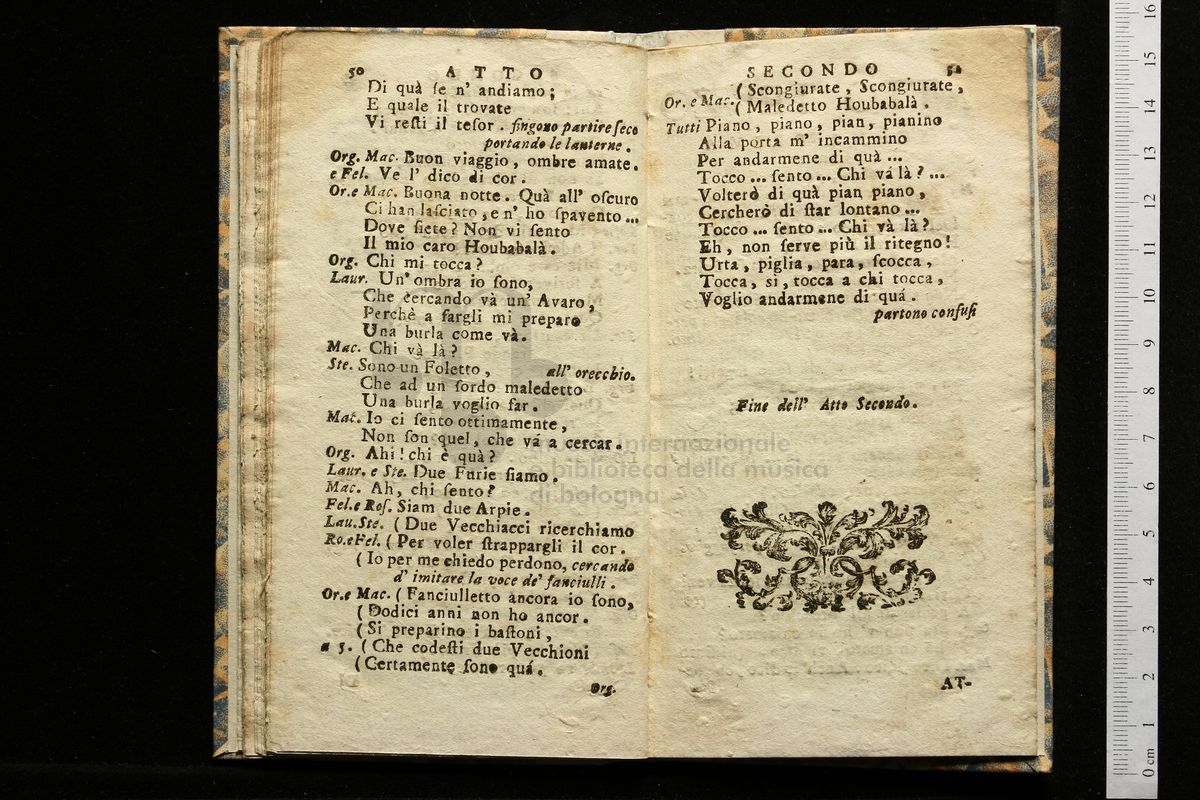 50 ATTO
Di quà ſe n' andiamo;
E quale il trovate
Vi reſti il teſor. fingono partire ſeco
portando le lanterne.
Org. Mac. Buon viaggio, ombre amate.
e Fel. Ve l' dico di cor.
Or.e Mac. Buona notte. Quà all' oſcuro
Ci han laſciato, e n' ho ſpavento...
Dove ſiete? Non vi ſento
Il mio caro Houbabalà.
Org. Chi mi tocca?
Laur. Un' ombra io ſono,
Che cercando và un' Avaro,
Perchè a fargli mi preparo
Una burla come và.
Mac. Chi và là?
Ste. Sono un Foletto, all' orecchio.
Che ad un ſordo maledetto
Una burla voglio far.
Mac. Io ci ſento ottimamente,
Non ſon quel, che vá a cercar.
Org. Ahi! chi è quà?
Laur. e Ste. Due Furie ſiamo.
Mac. Ah, chi ſento?
Fel.e Roſ. Siam due Arpie.
Lau.Ste. ( Due Vecchiacci ricerchiamo
Ro.eFel. ( Per voler ſtrappargli il cor.
( Io per me chiedo perdono, cercando
d' imitare la voce de' fanciulli.
Or.e Mac. ( Fanciulletto ancora io ſono,
( Dodici anni non ho ancor.
( Si preparino i baſtoni,
a 5. ( Che codeſti due Vecchioni
( Certamente ſono quá.
Org.
SECONDO 51
( Scongiurate, Scongiurate,
Or. e Mac. ( Maledetto Houbabalà.
Tutti Piano, piano, pian, pianino
Alla porta m' incammino
Per andarmene di quà...
Tocco... ſento... Chi vá là?...
Volterò di quà pian piano,
Cercherò di ſtar lontano...
Tocco... ſento... Chi và là?
Eh, non ſerve più il ritegno!
Urta, piglia, para, ſcocca,
Tocca, si, tocca a chi tocca,
Voglio andarmene di quá.
partono confuſi
Fine dell' Atto Secondo.
internazionale
e biblioteca della musica
di bologna
AT-
0 cm 1 2 3 4 5 6 7 8 9 10 11 12 13 14 15 16